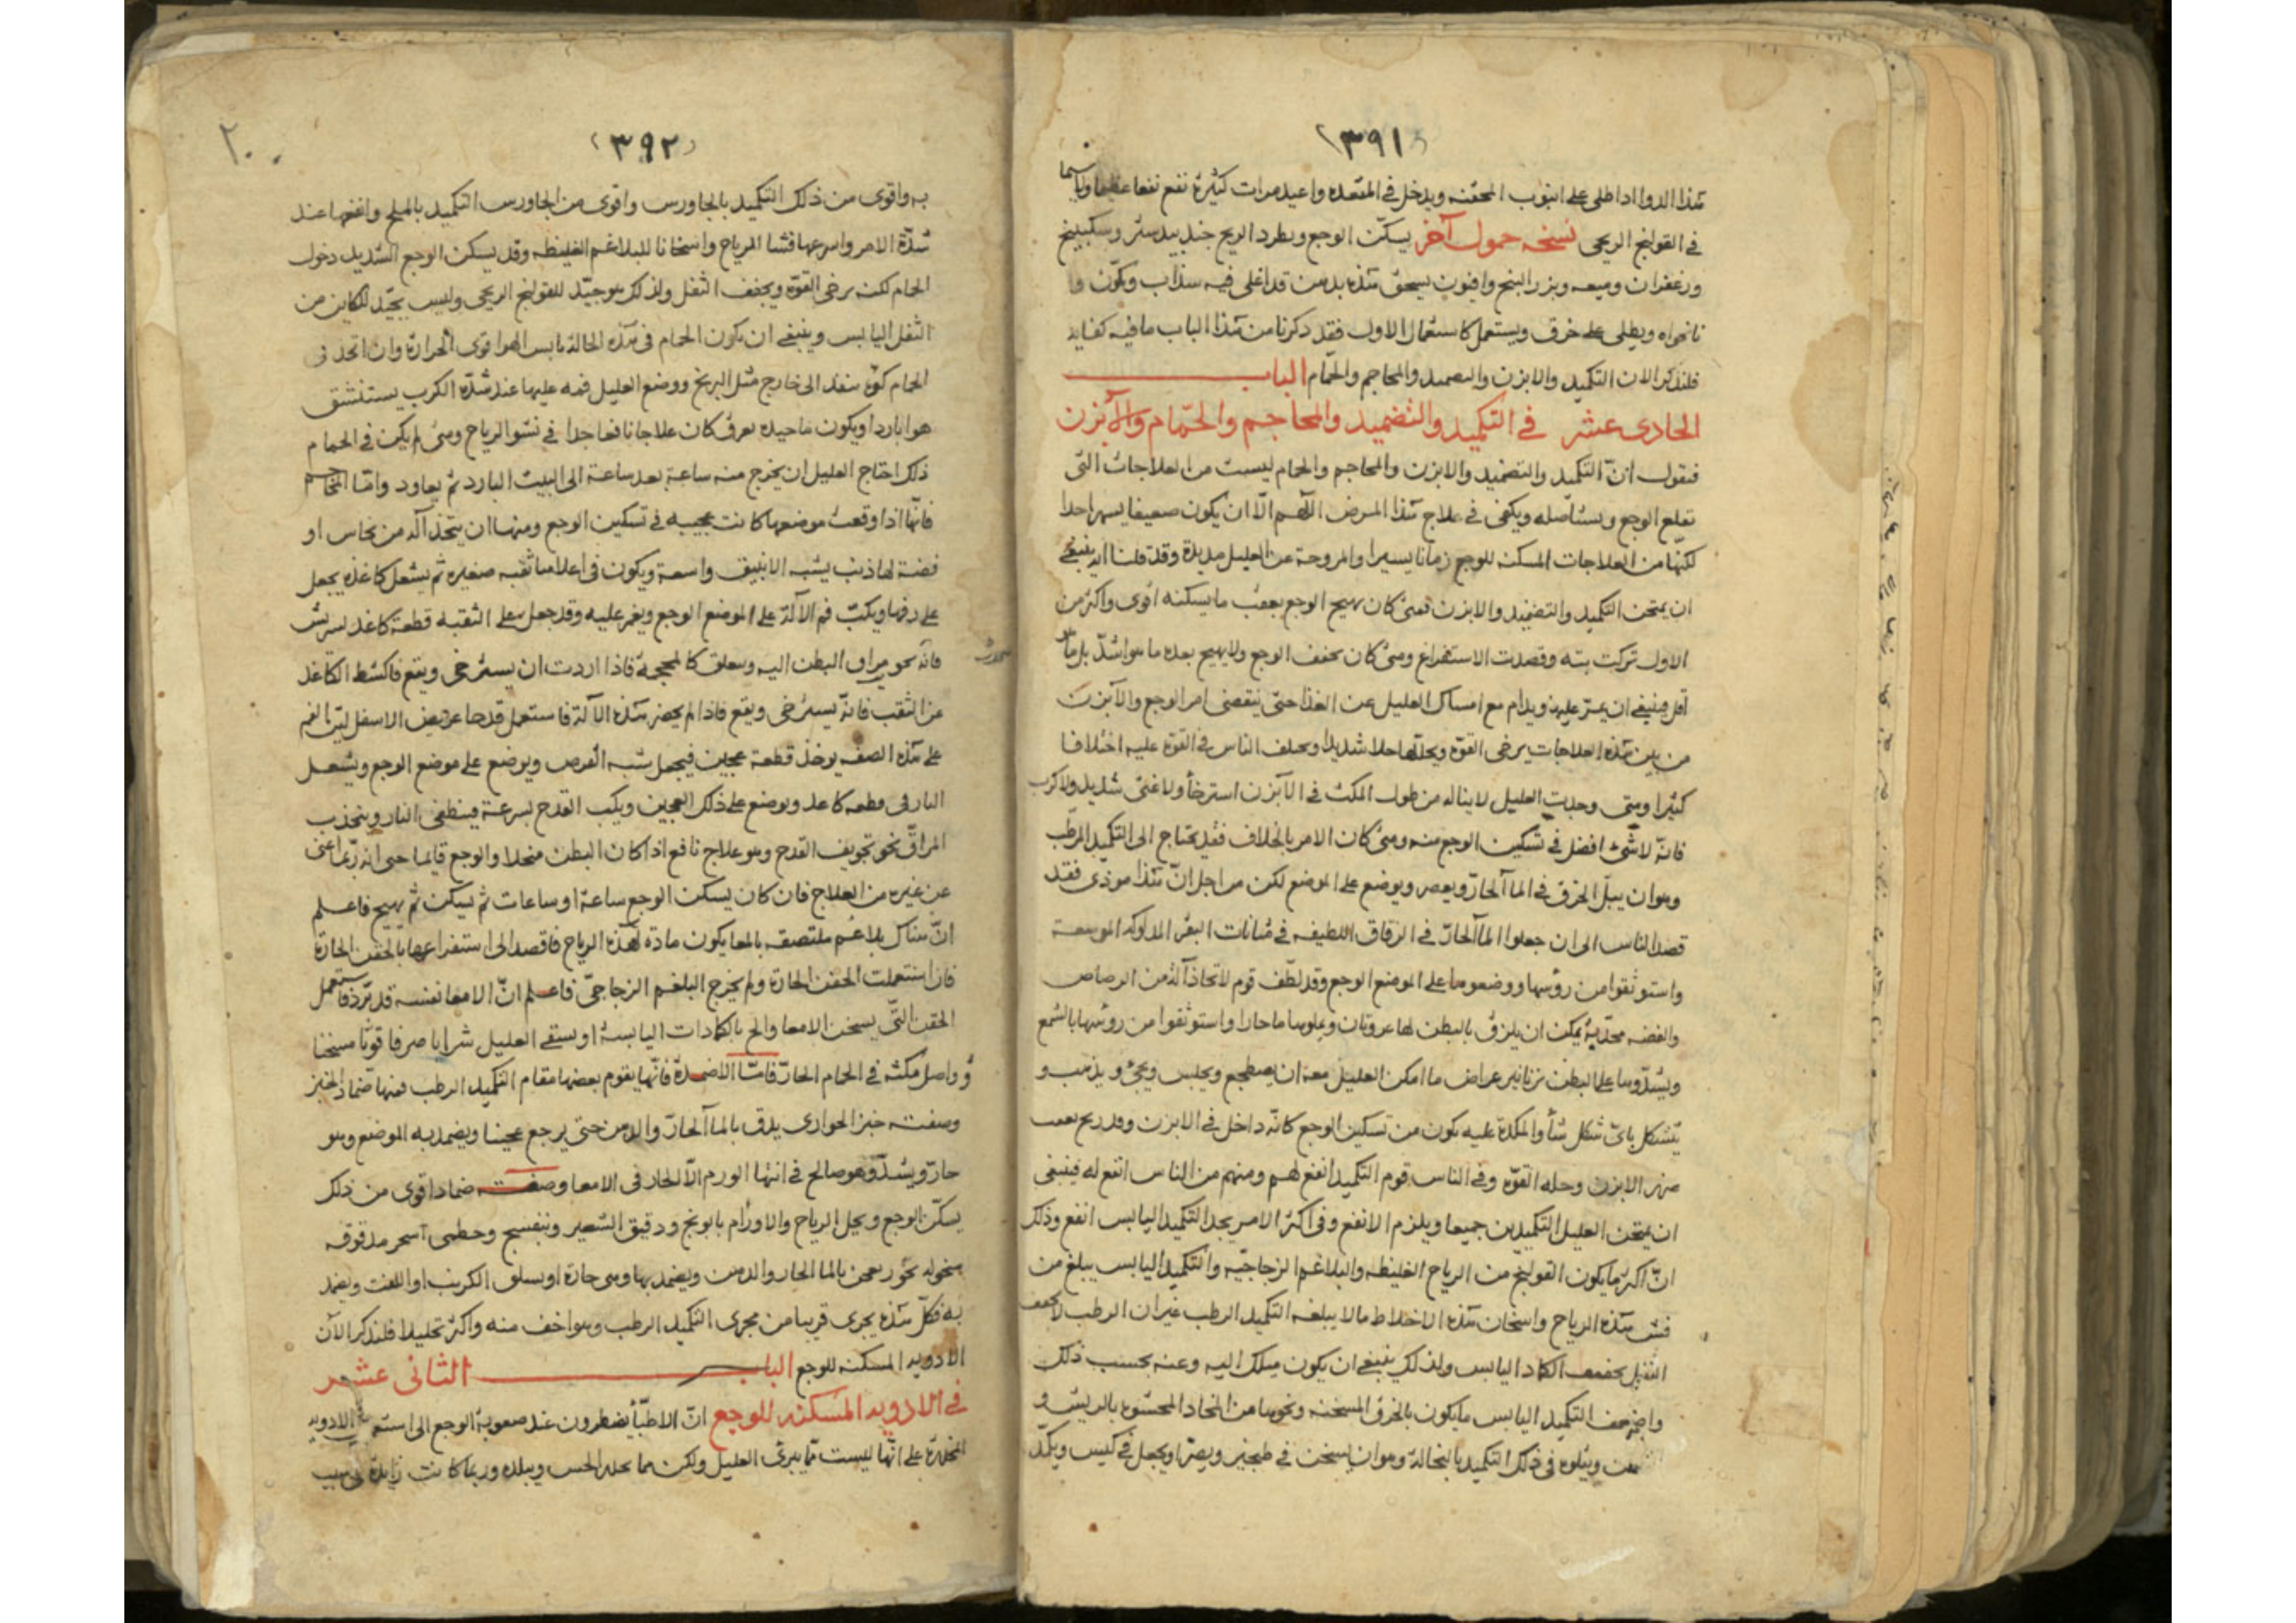 ٣٩١
هذا الدوا اذا طلى على انبوب المحقنه ويدخل فى المقعده واعيد مرات كثيرة نفع نفعا عظيما ولاسيما
فى القولنج الريحى نسخه حمول آخر يسكّن الوجع ويطرد الريح جندبيدستر وسكبينج
وزعفران وميعه وبزر البنج وافيون يسحق هذه بدهن قد اغلى فيه سذاب وكمّون و
نانخواه ويطلى على خرق ويستعمل كاستعمال الاول فقد ذكرنا من هذا الباب ما فيه كفايه
فلنذكر الان التكميد والابزن والتضميد والمحاجم والحمّام الباب
الحادى عشر فى التكميد والتضميد والمحاجم والحمّام والآبزن
فنقول انّ التكميد والتضميد والابزن والمحاجم والحمام ليست من العلاجات التى
تقلع الوجع ويستأصله ويكفى فى علاج هذا المرض اللّهم الّا ان يكون ضعيفا يسيرا جدا
لكنّها من العلاجات المسكنه للوجع زمانا يسيرا والمروحة عن العليل مديدة وقد قلنا انه ينبغى
ان يمتحن التكميد والتضميد والابزن فمتى كان يهيج الوجع بعقب ما يسكنه اقوى واكثر من
الاول تركت بته وقصدت الاستفراغ ومتى كان يخفف الوجع ولا يهيج بعده ما هو اشدّ بل ما هو
اقل فينبغى ان يمرّ عليه ويدام مع امساك العليل عن الغذا حتى ينقضى امر الوجع والآبزن
من بين هذه العلاجات يرخى القوّه ويحلّها حلا شديدا ويختلف الناس فى القوة عليه اختلافا
كثيرا ومتى وجدت العليل لا يناله من طول المكث فى الآبزن استرخأ ولا غشى شديد ولا كرب
فانّه لا شئ افضل فى تسكين الوجع منه ومتى كان الامر بالخلاف فقد يحتاج الى التكميد المرطّب
وهو ان يبلّ الخرق فى المآ الحارّ ويعصر ويوضع على الموضع لكن من اجل انّ هذا موذى فقد
قصد الناس الى ان جعلوا المآ الحارّ فى الزقاق اللطيفه فى مثانات البقر المدلوكه الموسعة
واستوثقوا من رؤسها ووضعوها على الموضع الوجع وقد لطّف قوم لاتخاذ آلة من الرصاص
والفضه محدّبة يمكن ان يلزق بالبطن لها عروتان ويملوها ما حارا واستوثقوا من روسها بالشمع
ويشدّوها على البطن بزنانير عراض ما امكن العليل معه ان يضطجع ويجلس ويجئ ويذهب و
يتشكل باىّ شكل شأ والمكدة عليه يكون من تسكين الوجع كانّه داخل فى الابزن وقد ربح
ضرر الابزن وحله القوّه وفى الناس قوم التكميد انفع لهم ومنهم من الناس انفع له فينبغى
ان يمتحن العليل التكميدين جميعا ويلزم الانفع وفى اكثر الامر يجد التكميد اليابس انفع وذلك
انّ اكثر ما يكون القولنج من الرياح الغليظه والبلاغم الزجاجيّه والتكميد اليابس يبلغ من
فش هذه الرياح واسخان هذه الاخلاط مالا يبلغه التكميد الرطب غيران الرطب لا يجفف
الثفل ويجففه الكماد اليابس ولذلك ينبغى ان يكون ميلك اليه وعنه بحسب ذلك
واضعف التكميد اليابس ما يكون بالخرق المسخنه ونحوها من المخاد المحشوه بالريش و
ويتلوه فى ذلك التكميد بالنخالة وهو ان يسخن فى طنجير ويصرّ او يجعل فى كيس ويكمّد
٣٩٢
٢٠٠
به واقوى من ذلك التكميد بالجاورس واقوى من الجاورس التكميد بالملح وانفعها عند
شدّة الامر واسرعها فشا للرياح واسخانا للبلاغم الغليظه وقد يسكن الوجع الشديد دخول
الحمام لكنه يرخى القوّه ويجفف الثفل ولذلك هو جيّد للقولنج الريحى وليس بجيّد للكاين من
الثفل اليابس وينبغى ان يكون الحمام فى هذه الحالة يابس الهوا قوى الحرارة وان اتخذ فى
الحمام كوّة منفذ الى خارج مثل البربخ ووضع العليل فمه عليها عند شدّة الكرب يستنشق
هوا باردا ويكون ما حيده يعرق كان علاجا نافعا جدا فى نشو الرياح ومتى لم يكن فى الحمام
ذلك احتاج العليل ان يخرج منه ساعة بعد ساعة الى البيت البارد ثم يعاود وامّا المحاجم
فانّها اذا وقعت موضعها كانت عجيبه فى تسكين الوجع ومنها ان يتخذ آله من نحاس او
فضة لها ذنب يشبه الانبيق واسعة ويكون فى اعلاها ثقبه صغيره ثم يشعل كاغذه يجعل
على دفها ويكبّ فم الآلة على الموضع الوجع ويغمر عليه وقد جعل على الثقبه قطعة كاغد
فانّه نحو مراق البطن اليه ويعلق كالمحجمة فاذا اردت ان يسترخى ويقع فاكشط الكاغد
عن الثقب فانّه يسترخى ويقع فاذا لم يحضر هذه الآلة فاستعمل قدحا عريض الاسفل ليّن الفم
على هذه الصفه يوخذ قطعة عجين فيجعل شبه القرص ويوضع على موضع الوجع ويشعل
النار فى قطعه كاغد ويوضع على ذلك العجين ويكب القدح بسرعة فينطفى النار وينجذب
المراقّ نحو تجويف القدح وهو علاج نافع اذا كان البطن منحلا والوجع قايما حتى انه ربّما اغنى
عن غيره من العلاج فان كان يسكن الوجع ساعة او ساعات ثم يسكن ثم يهيج فاعلم
انّ هناك بلاغم ملتصقه بالمعا يكون مادّه لهذه الرياح فاقصد الى استفراعها بالحقن الحارة
فان استعملت الحقن الحارّة ولم يخرج البلغم الزجاجىّ فاعلم انّ الامعا نفسه قد برّد فاستعمل
الحقن التّى يسخن الامعا والح بالكمادات اليابسة او يسقى العليل شرابا صرفا قويّا مسخنا
وواصل مكثه فى الحمام الحارّ فامّا الاضمدة فانّها يقوم بعضها مقام التكميد الرطب فمنها ضماد الخبز
وصفته خبز الحوارى يدق بالمآ الحارّ والدهن حتى يرجع عجينا ويضمد به الموضع وهو
حارّ ويشدّ وهو صالح فى انتها الورم الّا الحار فى الامعا وصفته ضمادا قوى من ذلك
يسكّن الوجع ويحل الرياح والاورام بابونج ودقيق الشعير وبنفسج وخطمى مدقوقه
منخوله يعجن بالما الحار والدهن ويضمد بها وهى حارة او يسلق الكرنب او اللفت ويضمد
به فكلّ هذه يجرى قريبا من مجرى التكميد الرطب وهو اخف منه واكثر تحليلا فلنذكر الآن
الادويه المسكنه للوجع الباب الثانى عشر
فى الادويه المسكنه للوجع انّ الاطبّأ يضطرون عند صعوبة الوجع الى الادويه
المخدّرة على انّها ليست ممّا يبرئ العليل ولكن مما يخدر الحس ويبلده وربما كانت زايدة فى سبب